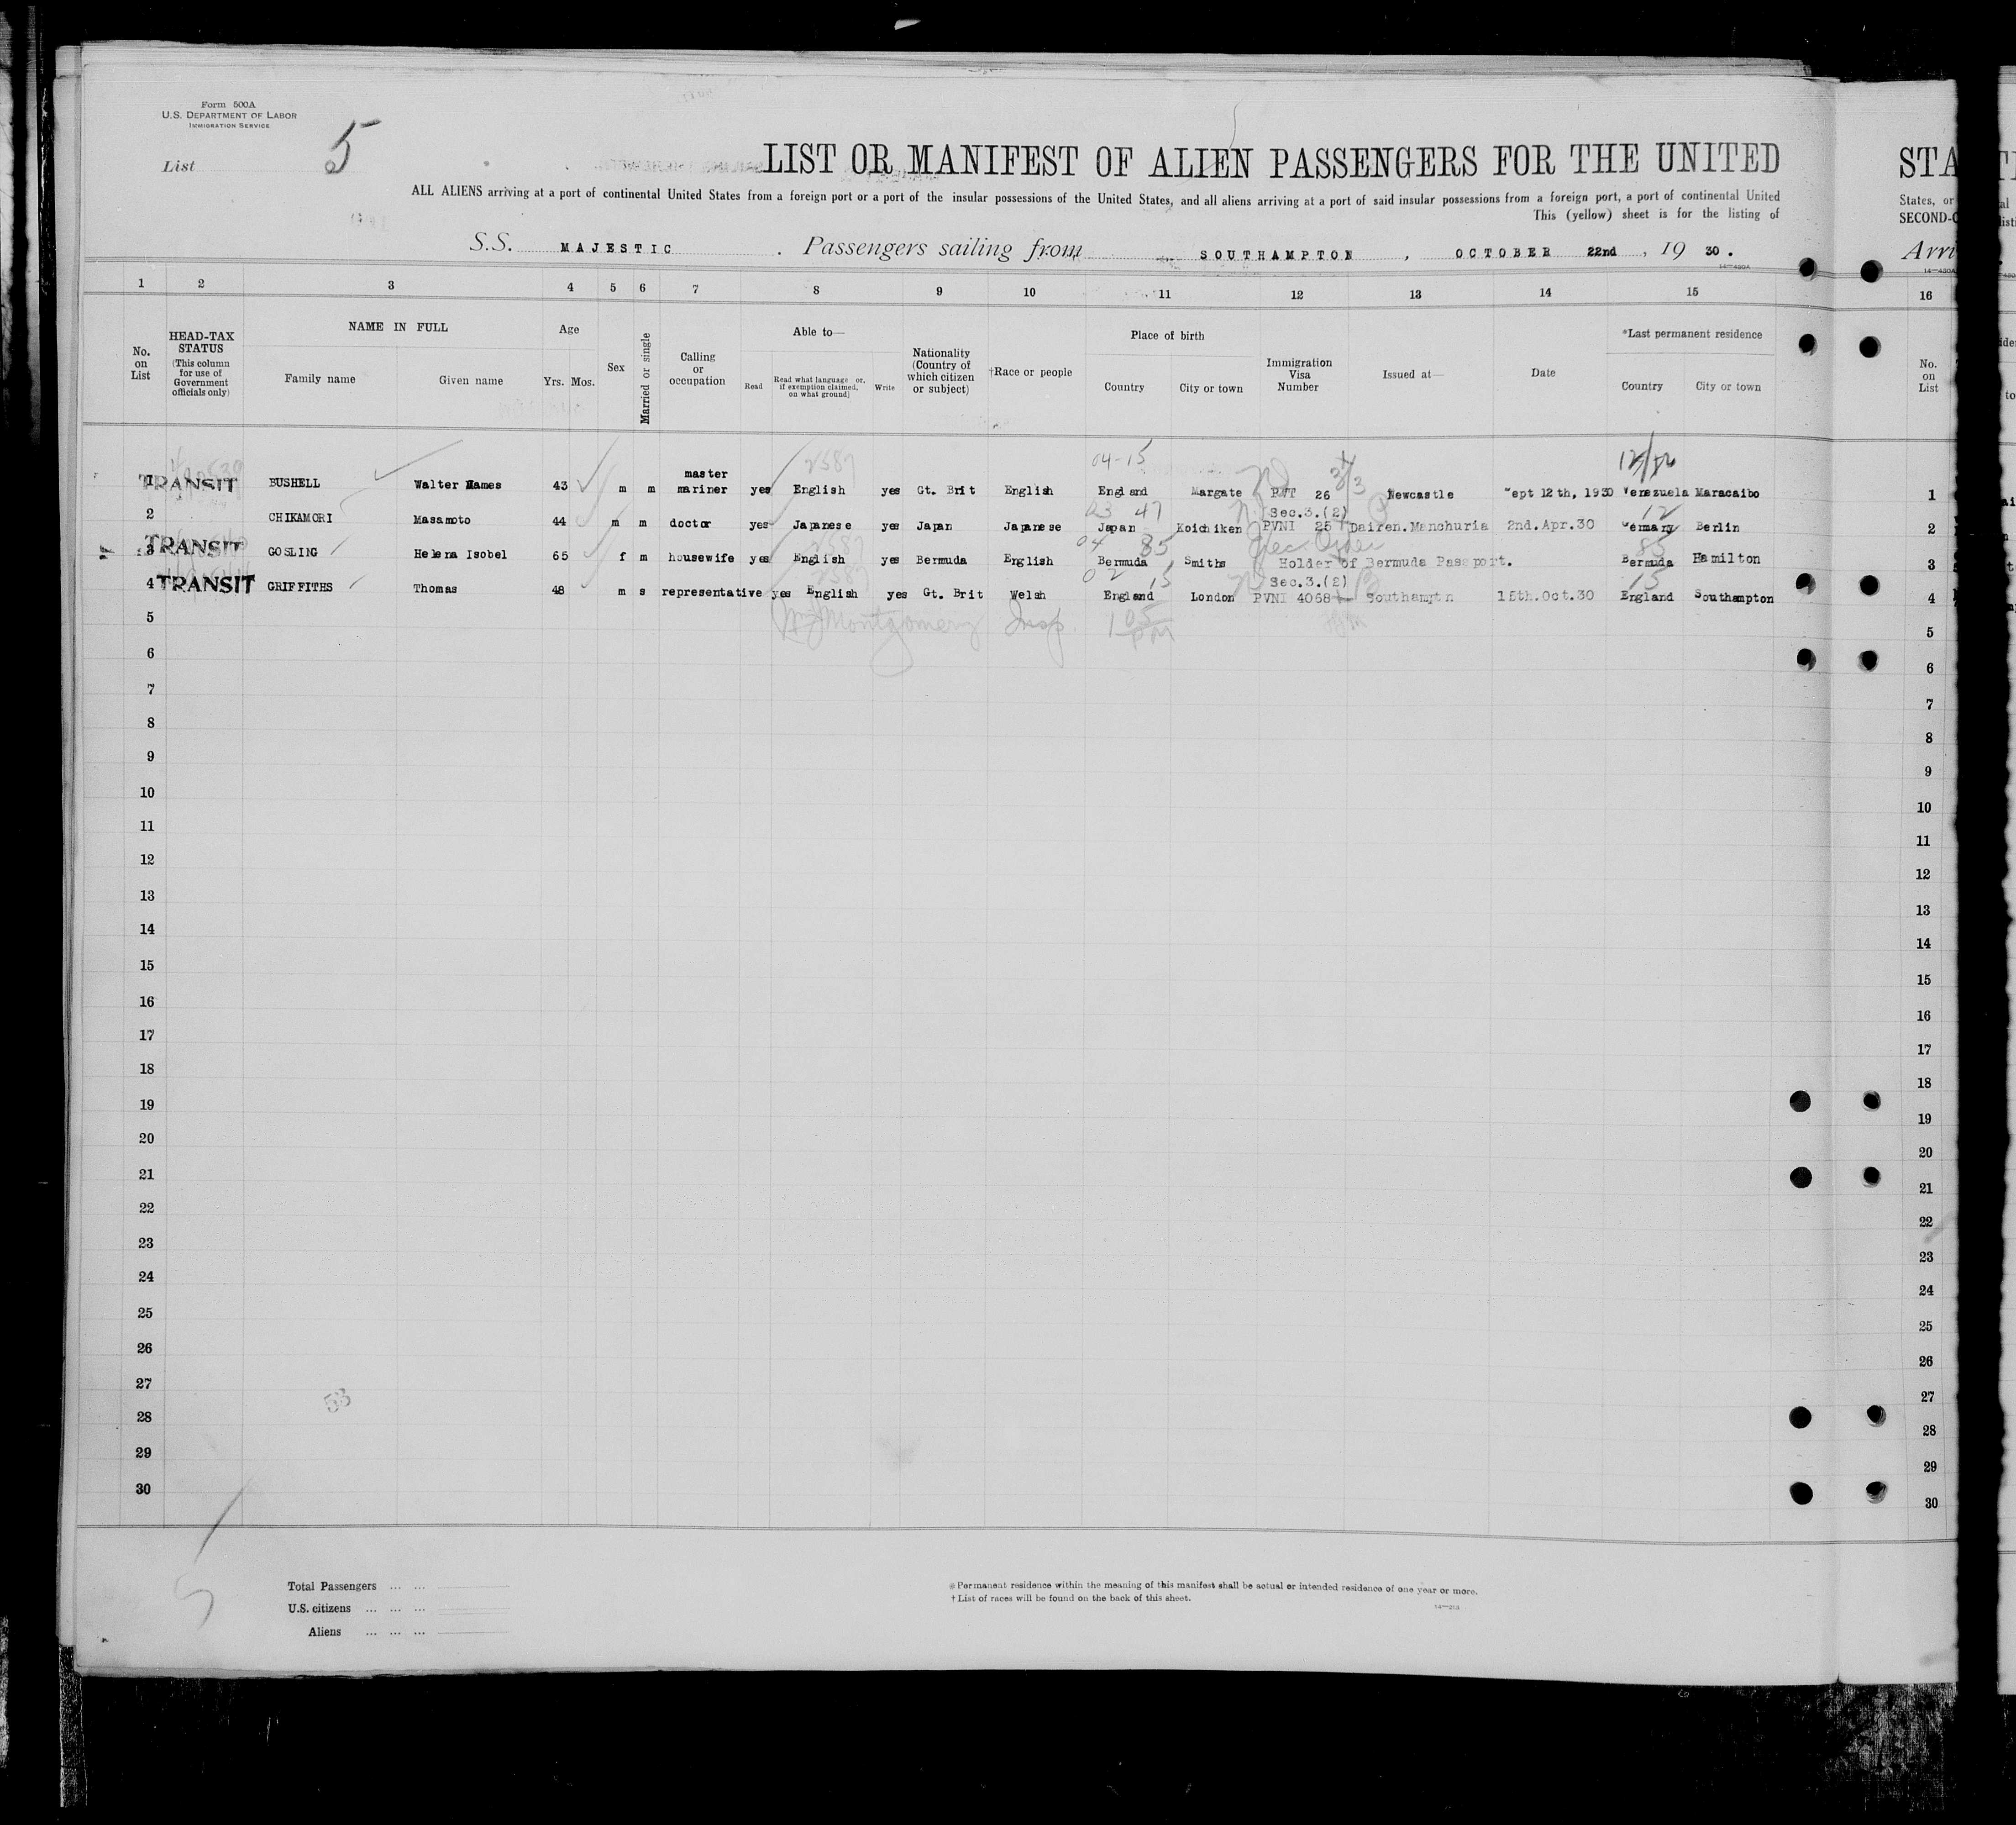 Form 500A
U.S. DEPARTMENT OF LABOR
IMMIGRATION SERVICE
List 5
LIST OR MANIFEST OF ALIEN PASSENGERS FOR THE UNITED
STA
ALL ALIENS arriving at a port of continental United States from a foreign port or a port of the insular possessions of the United States, and all aliens arriving at a port of said insular possessions from a foreign port, a port of continental United
States, or
This (yellow) sheet is for the listing of
SECOND-C
S.S. MAJESTIC . Passengers sailing from SOUTHAMPTON , OCTOBER 22nd , 19 30 .
Arri
1 2 3 4 5 6 7 8 9 10 11 12 13 14 15 16
No. on List
HEAD-TAX STATUS (This column for use of Government officials only)
NAME IN FULL
Family name
Given name
Age
Yrs. Mos.
Sex
Married or single
Calling or occupation
Able to—
Read
Read what language or, if exemption claimed, on what ground]
Write
Nationality (Country of which citizen or subject)
†Race or people
Place of birth
Country
City or town
Immigration Visa Number
Issued at—
Date
*Last permanent residence
Country
City or town
No. on List
2587 04-15
1 TRANSIT BUSHELL Walter James 43 m m master mariner yes English yes Gt. Brit English England Margate PVT 26 Newcastle Sept 12th, 1930 Venezuela Maracaibo 1
23 47 Sec.3.(2) 12
2 CHIKAMORI Masamoto 44 m m doctor yes Japanese yes Japan Japanese Japan Koichiken PVNI 25 Dairen.Manchuria 2nd.Apr.30 Germany Berlin 2
04 85 85
3 TRANSIT GOSLING Helena Isobel 65 f m housewife yes English yes Bermuda English Bermuda Smiths Holder of Bermuda Passport. Bermuda Hamilton 3
02 15 Sec.3.(2) 15
4 TRANSIT GRIFFITHS Thomas 48 m s representative yes English yes Gt. Brit Welsh England London PVNI 4068 Southamptn 15th.Oct.30 England Southampton 4
5 Montgomery Insp. 5
6 6
7 7
8 8
9 9
10 10
11 11
12 12
13 13
14 14
15 15
16 16
17 17
18 18
19 19
20 20
21 21
22 22
23 23
24 24
25 25
26 26
27 27
53
28 28
29 29
30 30
Total Passengers ... ...
U.S. citizens ... ... ...
Aliens ... ... ...
*Permanent residence within the meaning of this manifest shall be actual or intended residence of one year or more.
†List of races will be found on the back of this sheet.